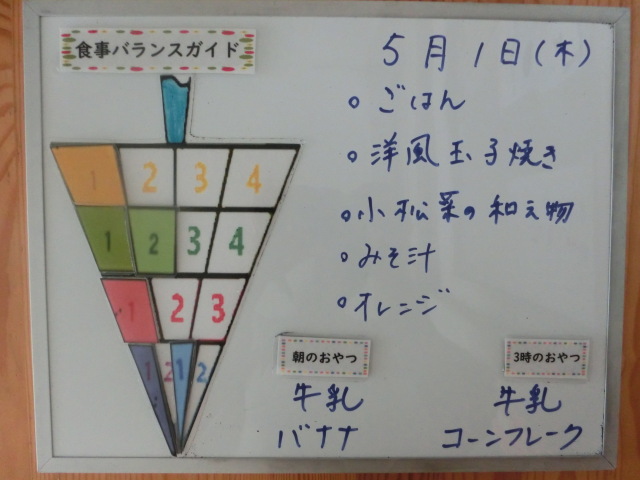 食事バランスガイド
1 2 3 4
1 2 3 4
1 2 3
1 2 1 2
5月1日(木)
。ごはん
。洋風玉子焼き
。小松菜の和え物
。みそ汁
。オレンジ
朝のおやつ
牛乳
バナナ
3時のおやつ
牛乳
コーンフレーク